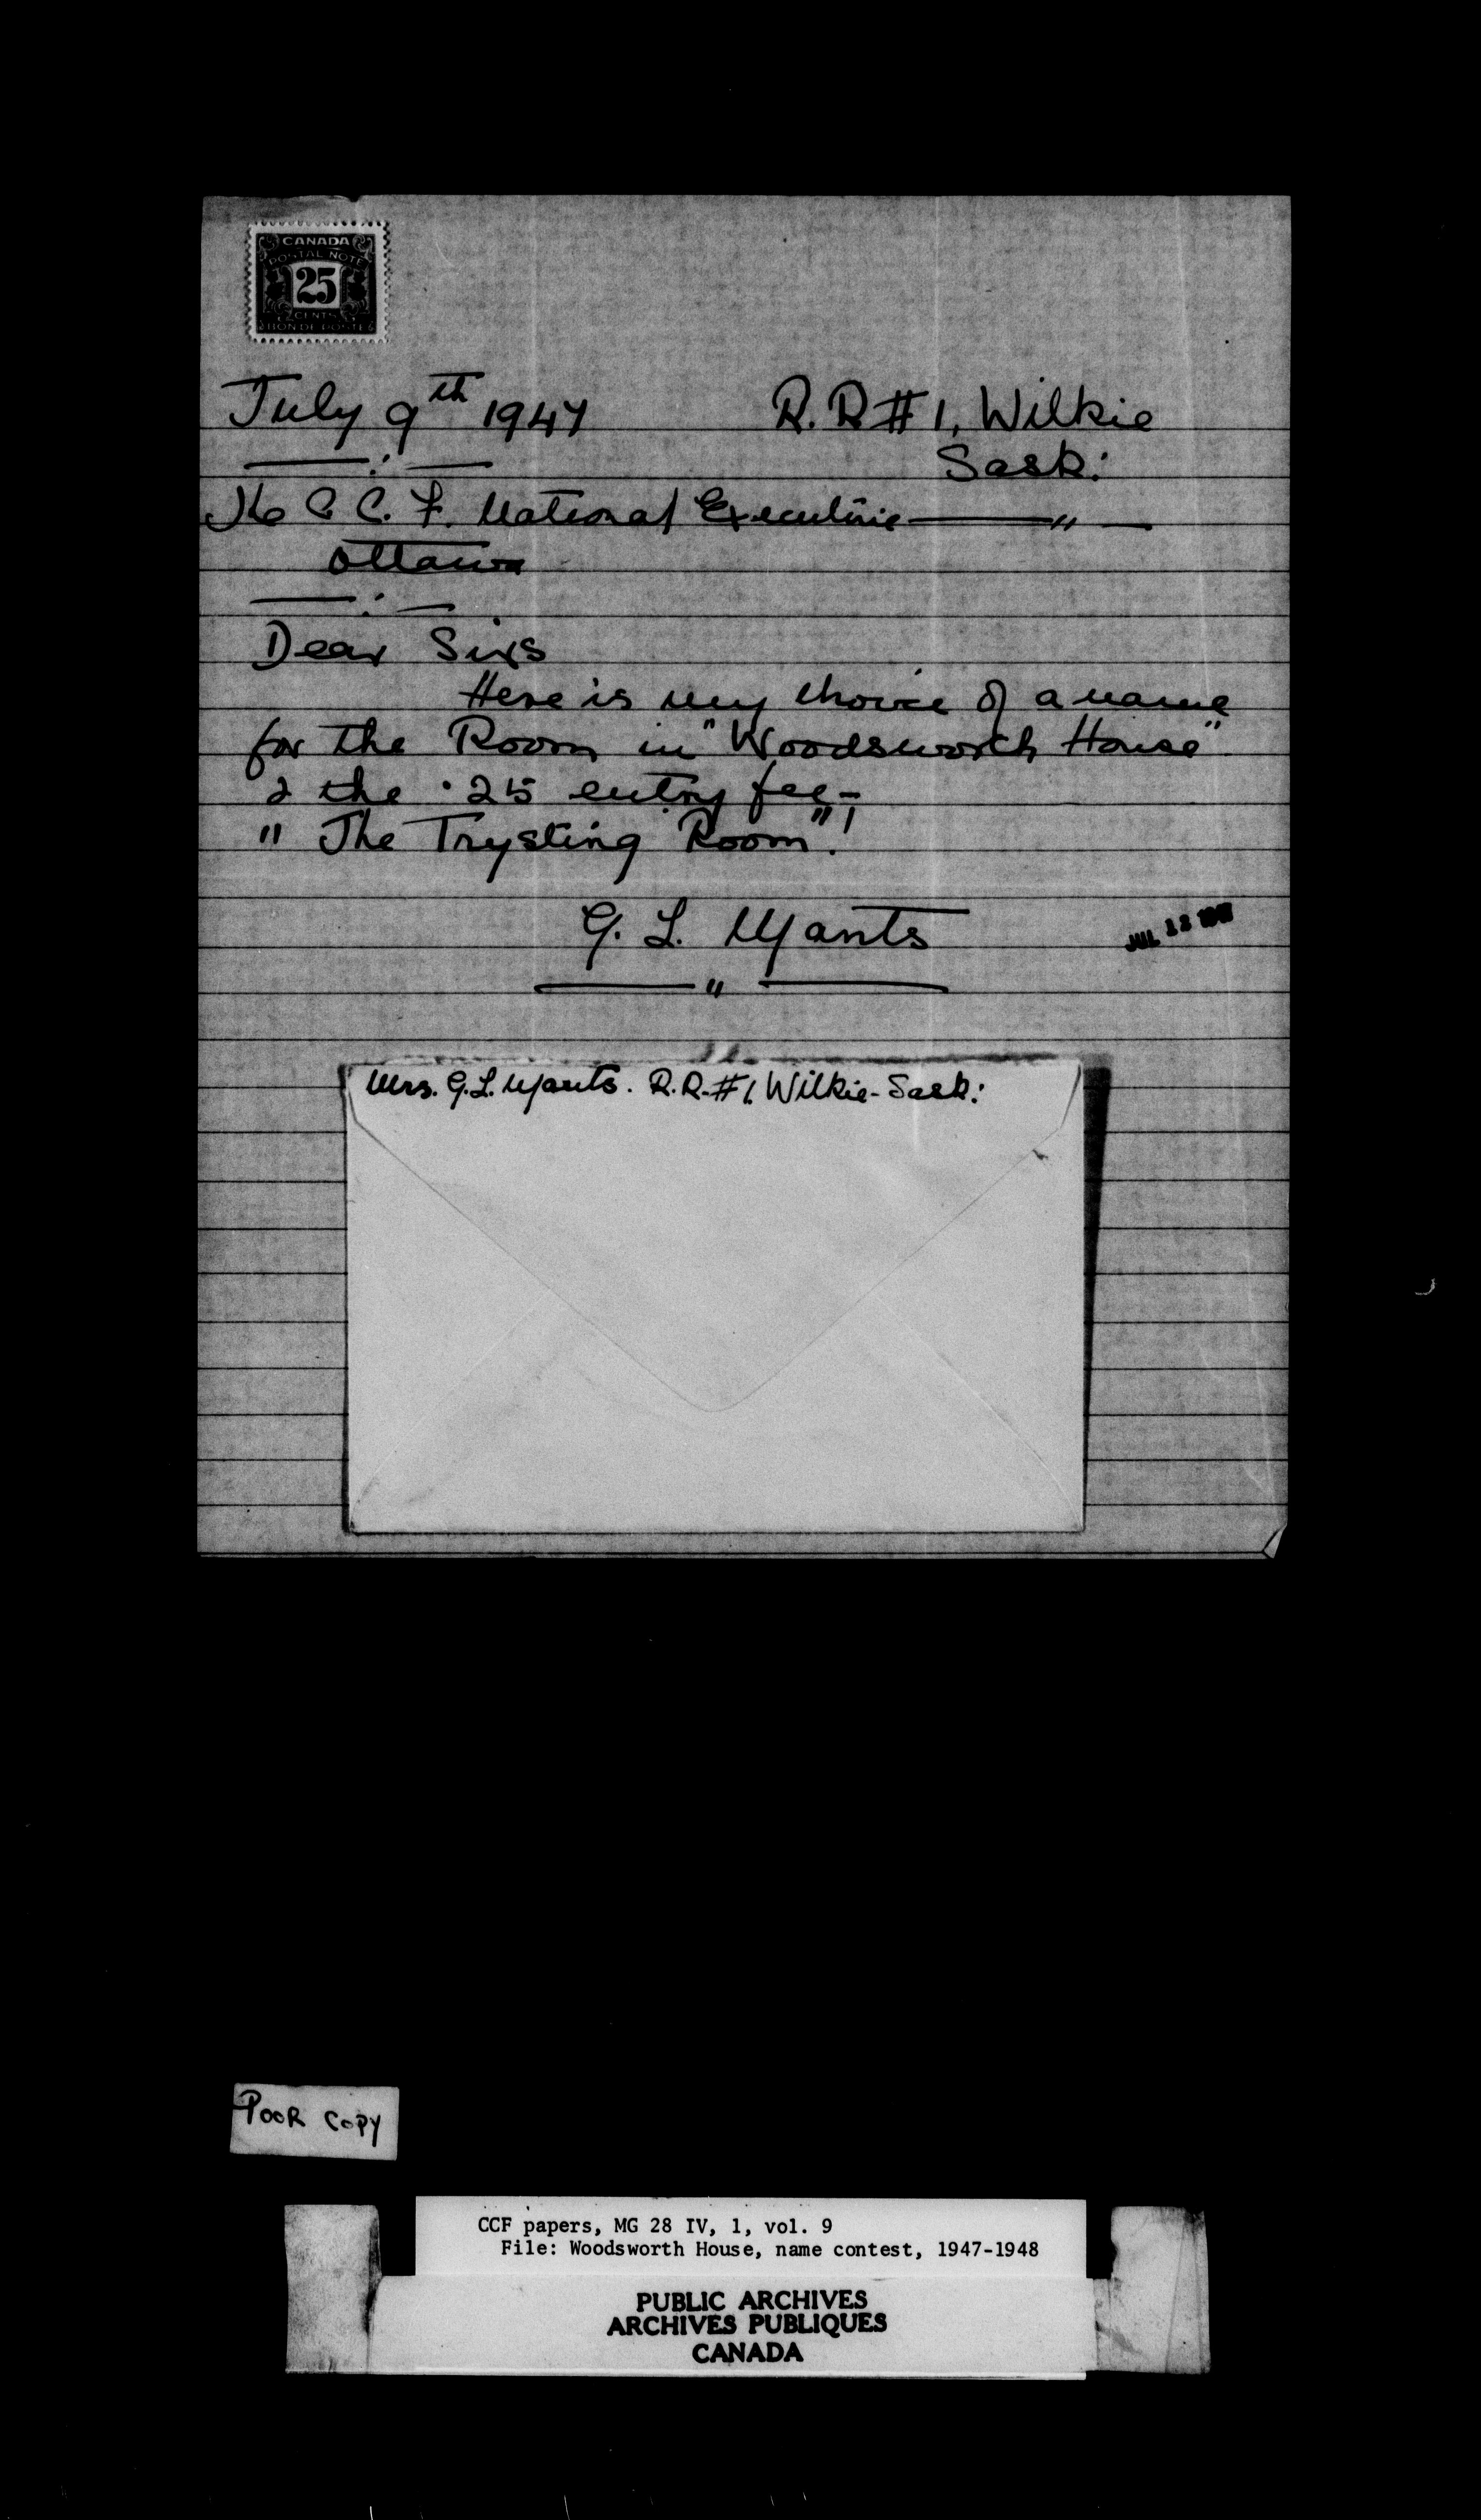 CANADA
POSTAL NOTE
25
CENTS
BON DE POSTE
July 9th 1947 R.R #1, Wilkie
Sask:
The C. C. F. National Executive
Ottawa
Dear Sirs
Here is my choice of a name
for the Room in "Woodsworth House"
& the .25 entry fee -
"The Trysting Room"!
G. L. Yants
JUL 12 1947
Mrs. G.L. Yants. R.R.#1. Wilkie - Sask:
POOR COPY
CCF papers, MG 28 IV, 1, vol. 9
File: Woodsworth House, name contest, 1947-1948
PUBLIC ARCHIVES
ARCHIVES PUBLIQUES
CANADA